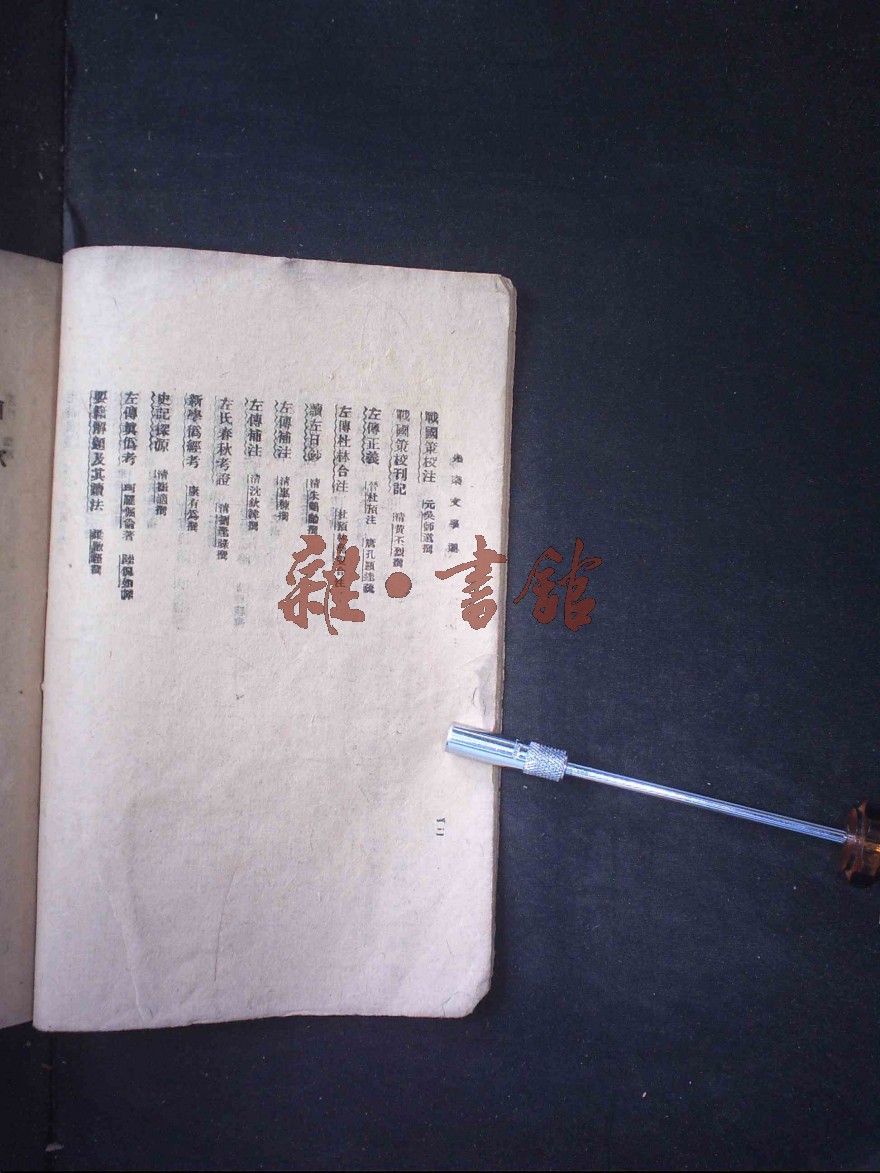 先秦文學選
戰國策校注 元吳師道撰
戰國策校刊記 清黃丕烈撰
左傳正義 晉杜預注 唐孔穎達疏
左傳杜林合注 杜預
讀左日鈔 清朱鶴齡撰
左傳補注 清惠棟撰
左傳補注 清沈欽韓撰
左氏春秋考證 清劉逢祿撰
新學僞經考 康有爲撰
史記探源 清崔適撰
左傳眞僞考 珂羅倔倫著 陸侃如譯
要籍解題及其讀法 梁啟超撰
雜·書館